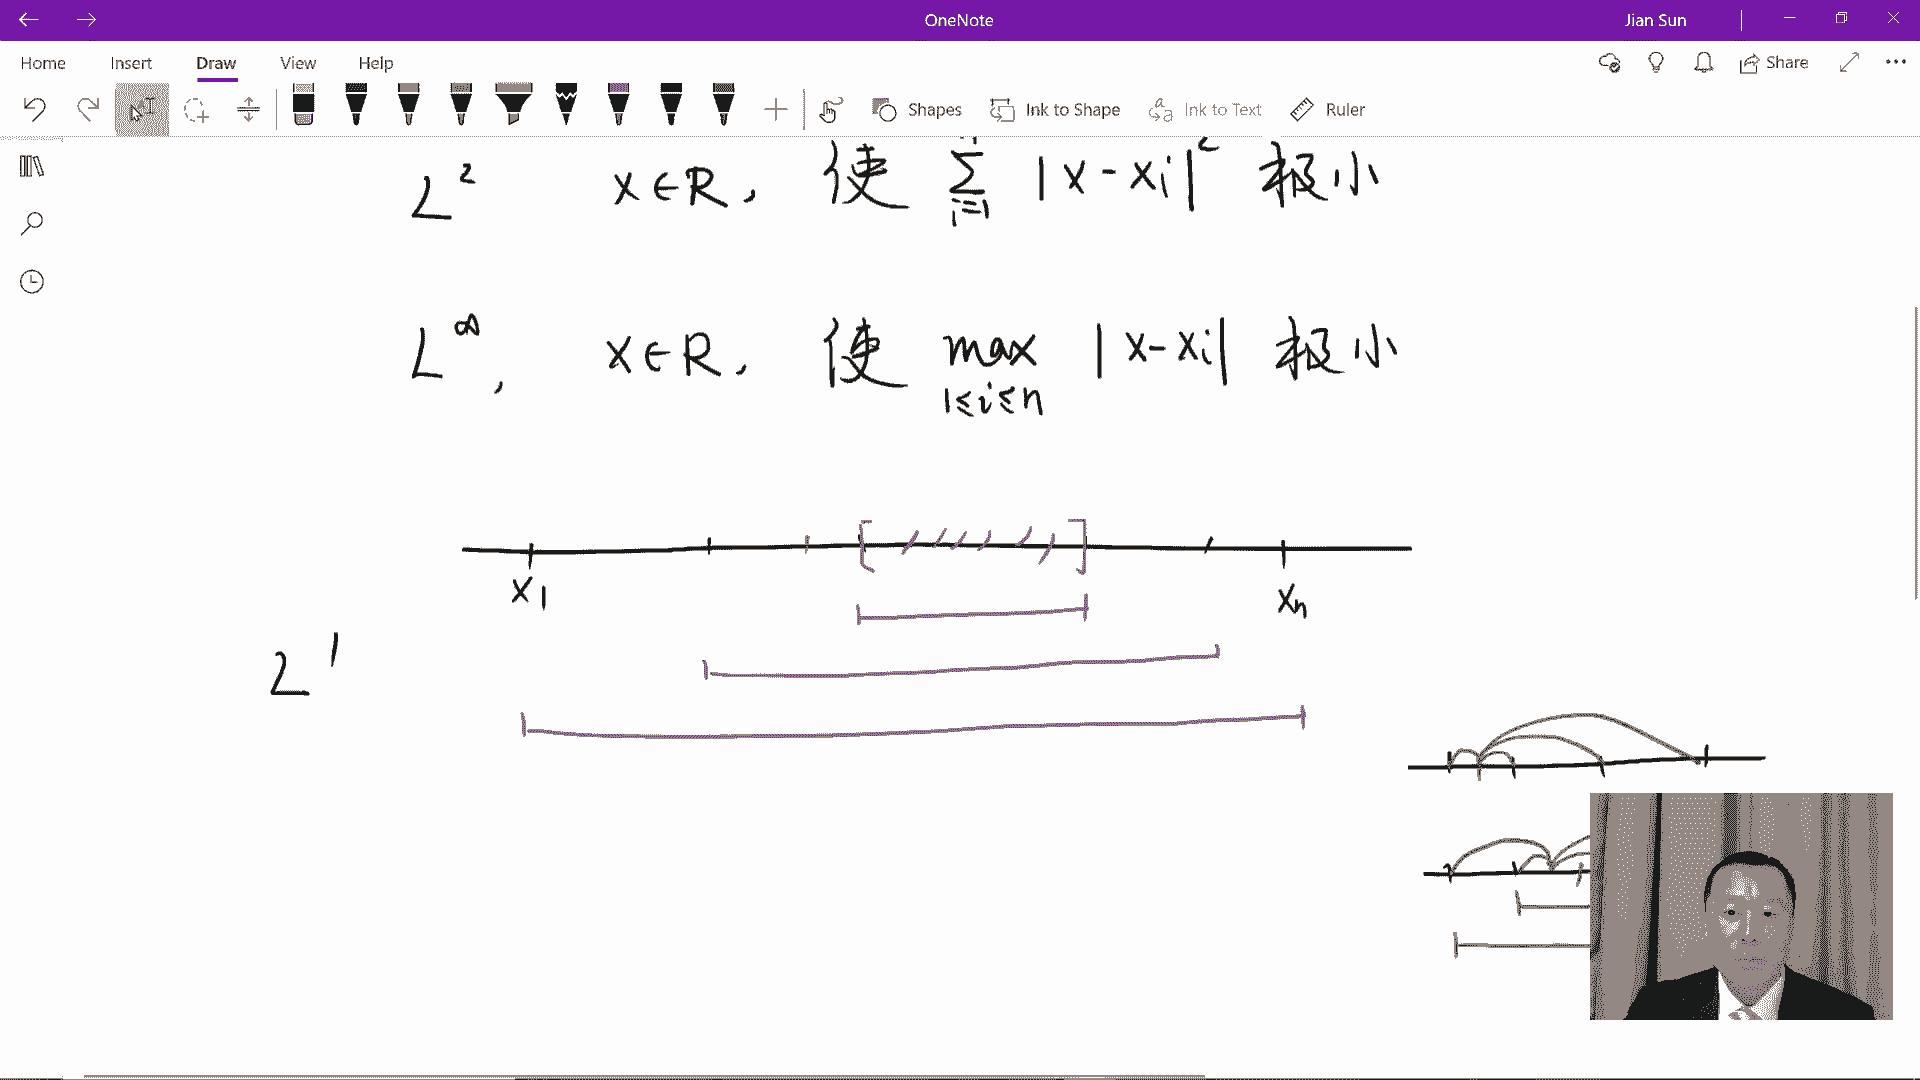 OneNote
Jian Sun
Home Insert Draw View Help
Share
Shapes Ink to Shape Ink to Text Ruler
L² x∈R, 使 ∑ i=1 |x-xi|² 极小
L^∞, x∈R, 使 max 1≤i≤n |x-xi| 极小
x1 xn
L¹